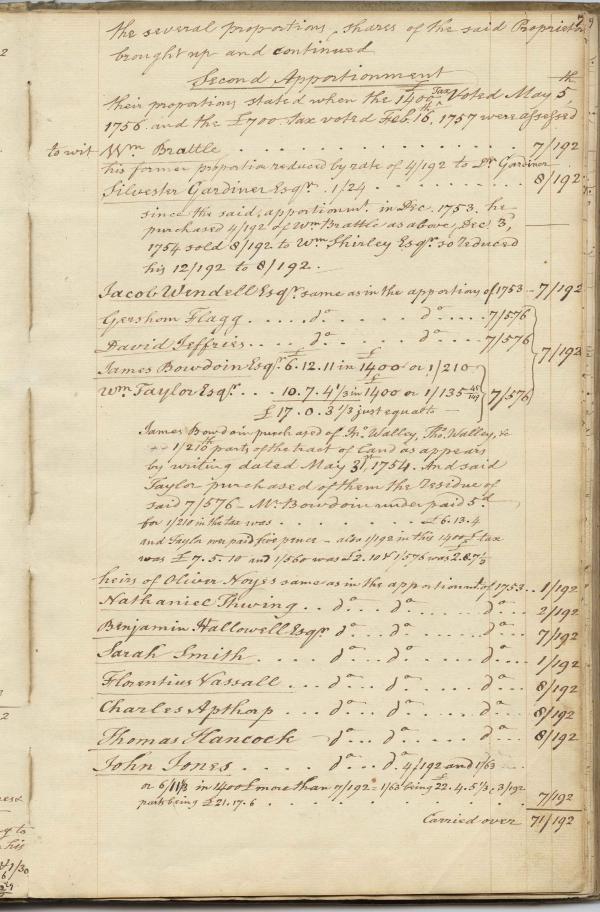 7
the several proportions, shares of the said Proprietors
brought up and continued
Second Apportionment
their proportions stated when the £1400 Tax Voted May 5th,
1756. and the £700. tax voted Feb. 16th, 1757 were assessed
to wit Wm Brattle . . . . . . . . . . 7/192
his former proportion reduced by sale of 4/192 to Dr Gardiner
Silvester Gardiner Esqr. 1/24 . . . . . . . . 8/192
since the said, apportionmt. in Dec. 1753. he
purchased 4/192 of Wm Brattle as above, Dec. 3d,
1754 sold 8/192 to Wm Shirley Esqr. so reduced
his 12/192 to 8/192.
Jacob Wendell Esqr. same as in the apportion of 1753 - 7/192
Gershom Flagg . . . . do . . . . do . . . . 7/576
David Jeffries . . . do . . . . do . . . . 7/576
7/192
James Bowdoin Esqr. £6.12.11 in £1400 or 1/210
Wm Taylor Esqr. . . . 10.7.4 1/3 in £1400 or 1/135 7/576
£17.0.3 1/3 just equals —
James Bowdoin purchased of Jno. Walley, Tho. Walley, &c
1/210th parts of the tract of land as appears
by writing dated May 31st, 1754. And said
Taylor purchased of them the Residue of
said 7/576 - Mr. Bowdoin under paid 5d.
for 1/210 in the tax was . . . . . . . . £6.13.4
and Taylor over paid five pence - also 1/192 in this 1400£ tax
was £7.5.10 and 1/560 was £2.10 & 1/576 was 2.8.7 1/3
heirs of Oliver Noyes same as in the apportionmt. of 1753 . . 1/192
Nathaniel Thwing . . do . . do . . . . do . . . 2/192
Benjamin Hallowell Esqr do . . do . . . . do . . . 7/192
Sarah Smith . . . . do . . do . . . . do . . . 1/192
Florentius Vassall . . . do . . do . . . . do . . . 8/192
Charles Apthorp . . . do . . do . . . . do . . . 8/192
Thomas Hancock do . . do . . . . do . . . 8/192
John Jones . . . . do . . do. 4/192 and 1/63
or 6/11 1/3 in 1400£ more than 7/192 = 1/63 being £22.4.5 1/3 & 3/192
parts being £21.17.6 . . . . . . . . 7/192
Carried over 71/192